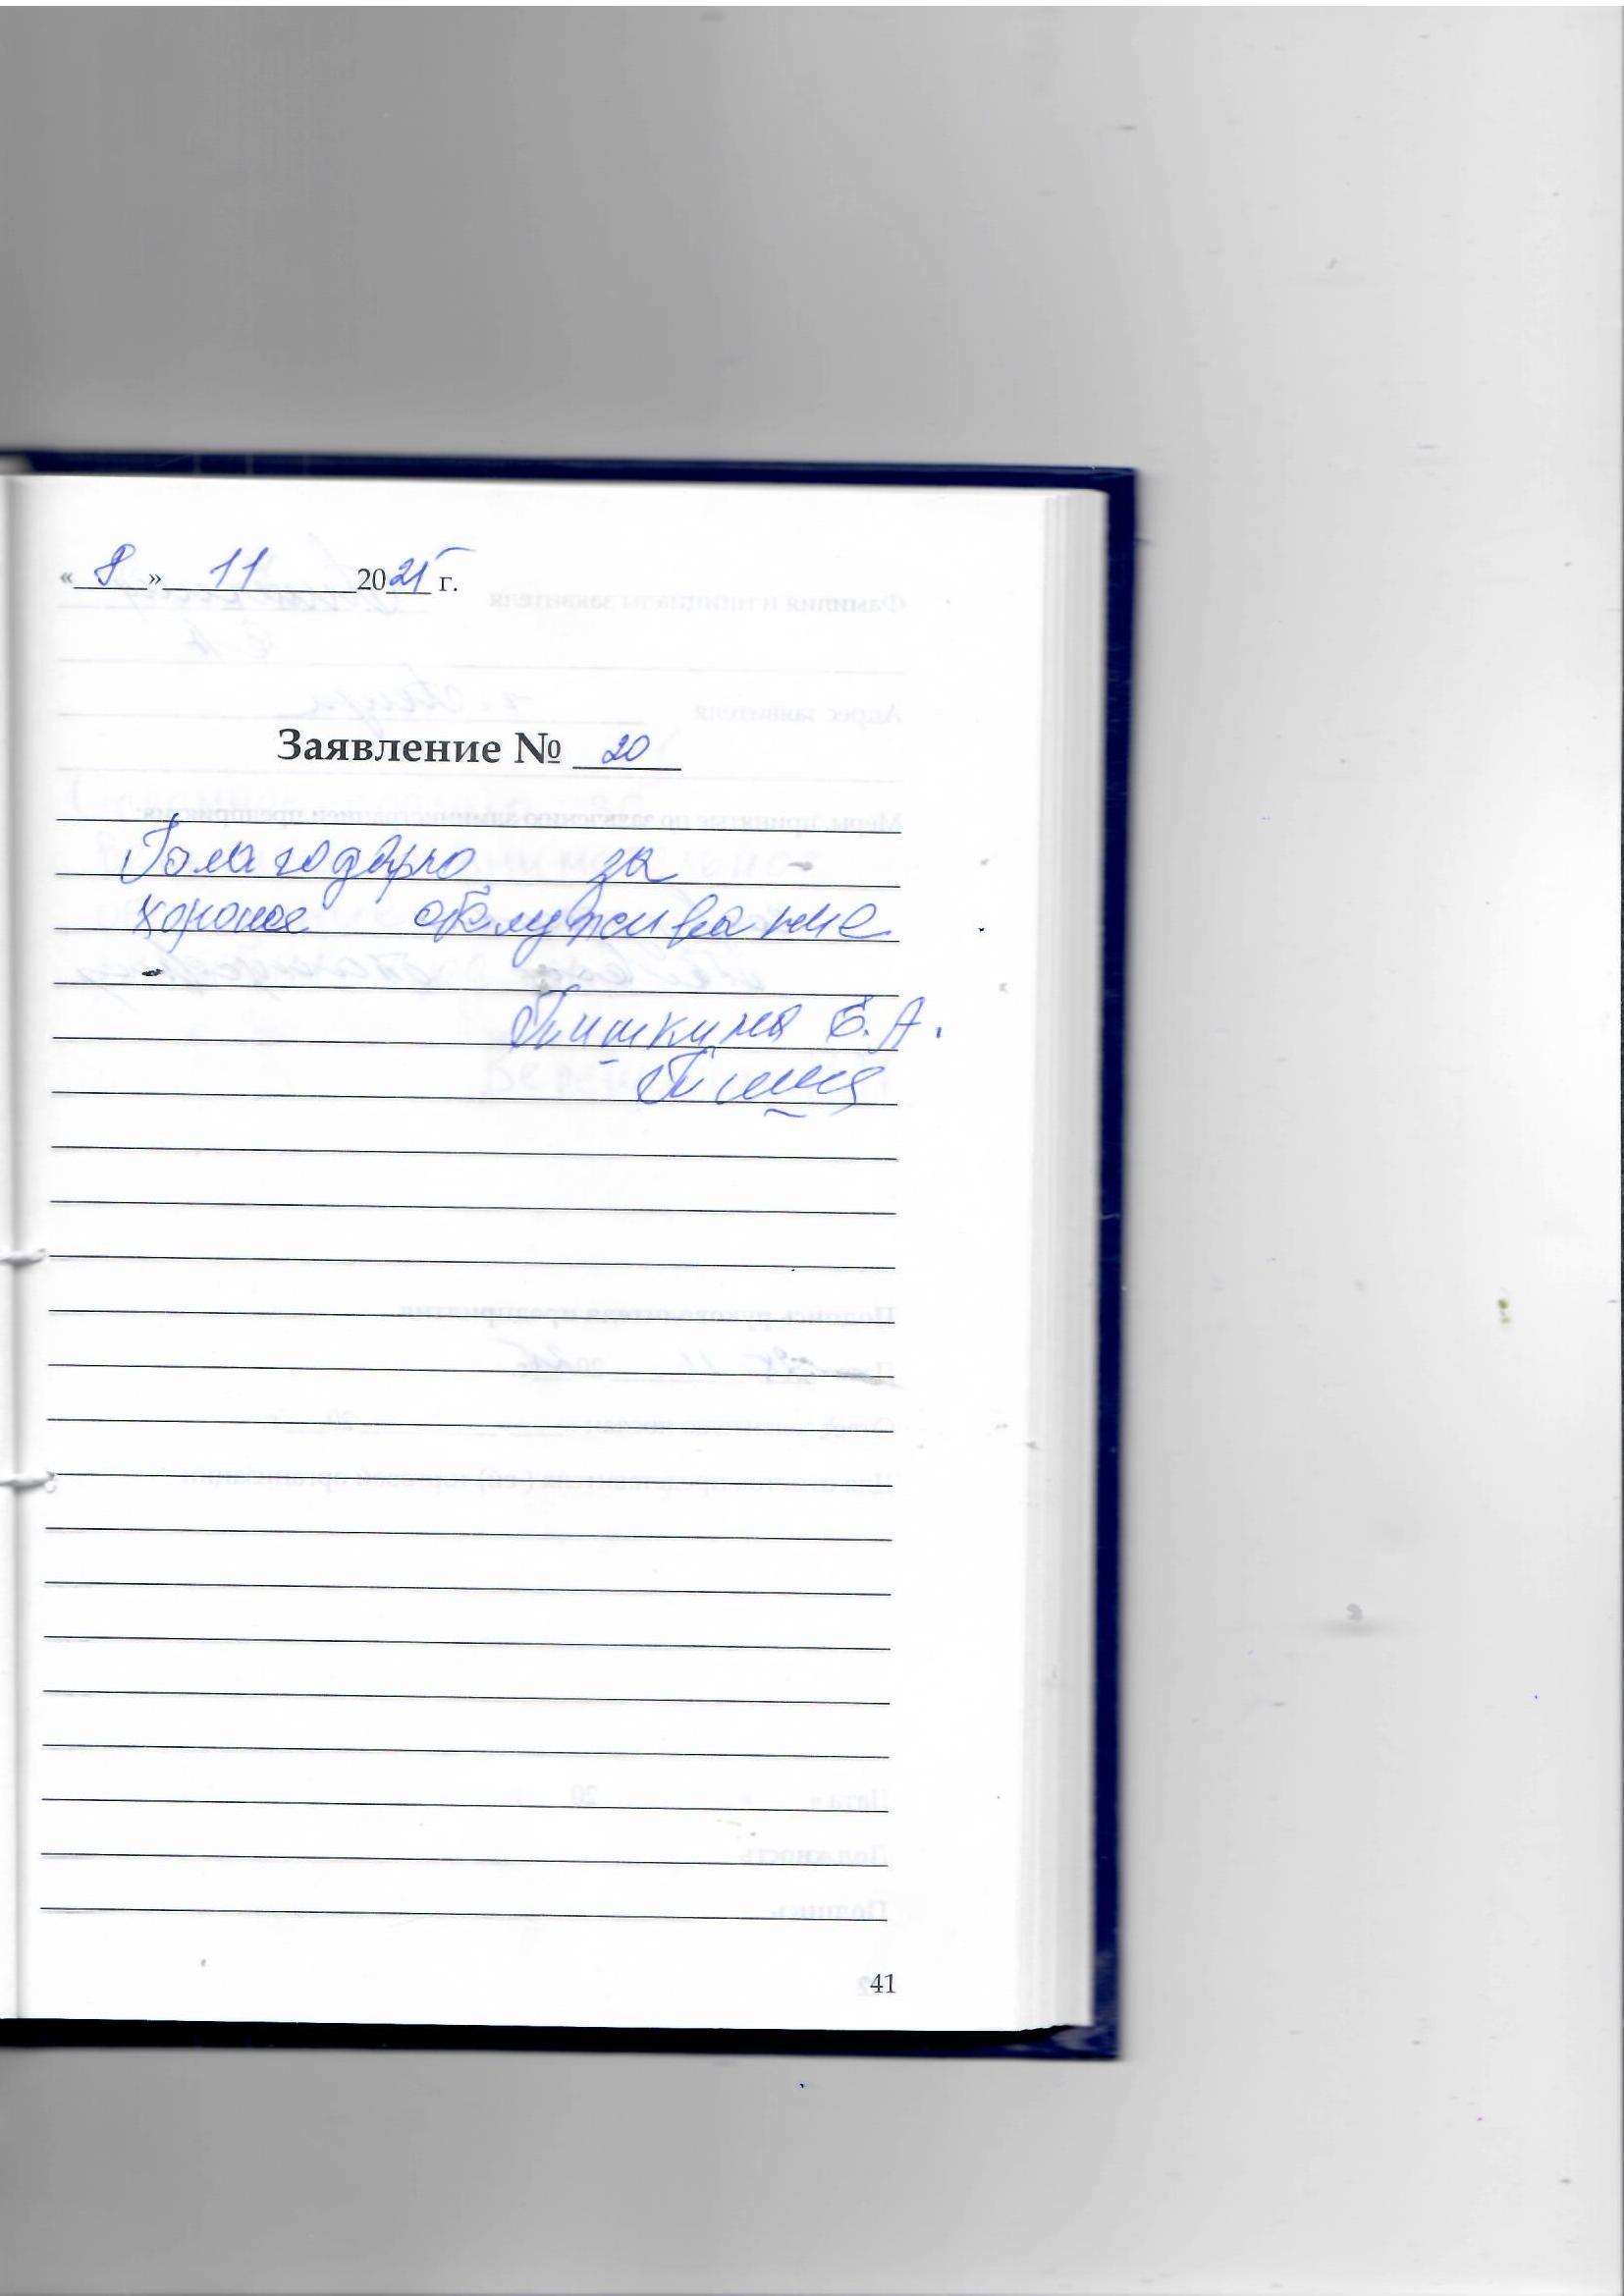 «8» 11 2025 г.
Заявление № 20
Благодарю за
хорошее обслуживание
Пишкина Е.А.
41